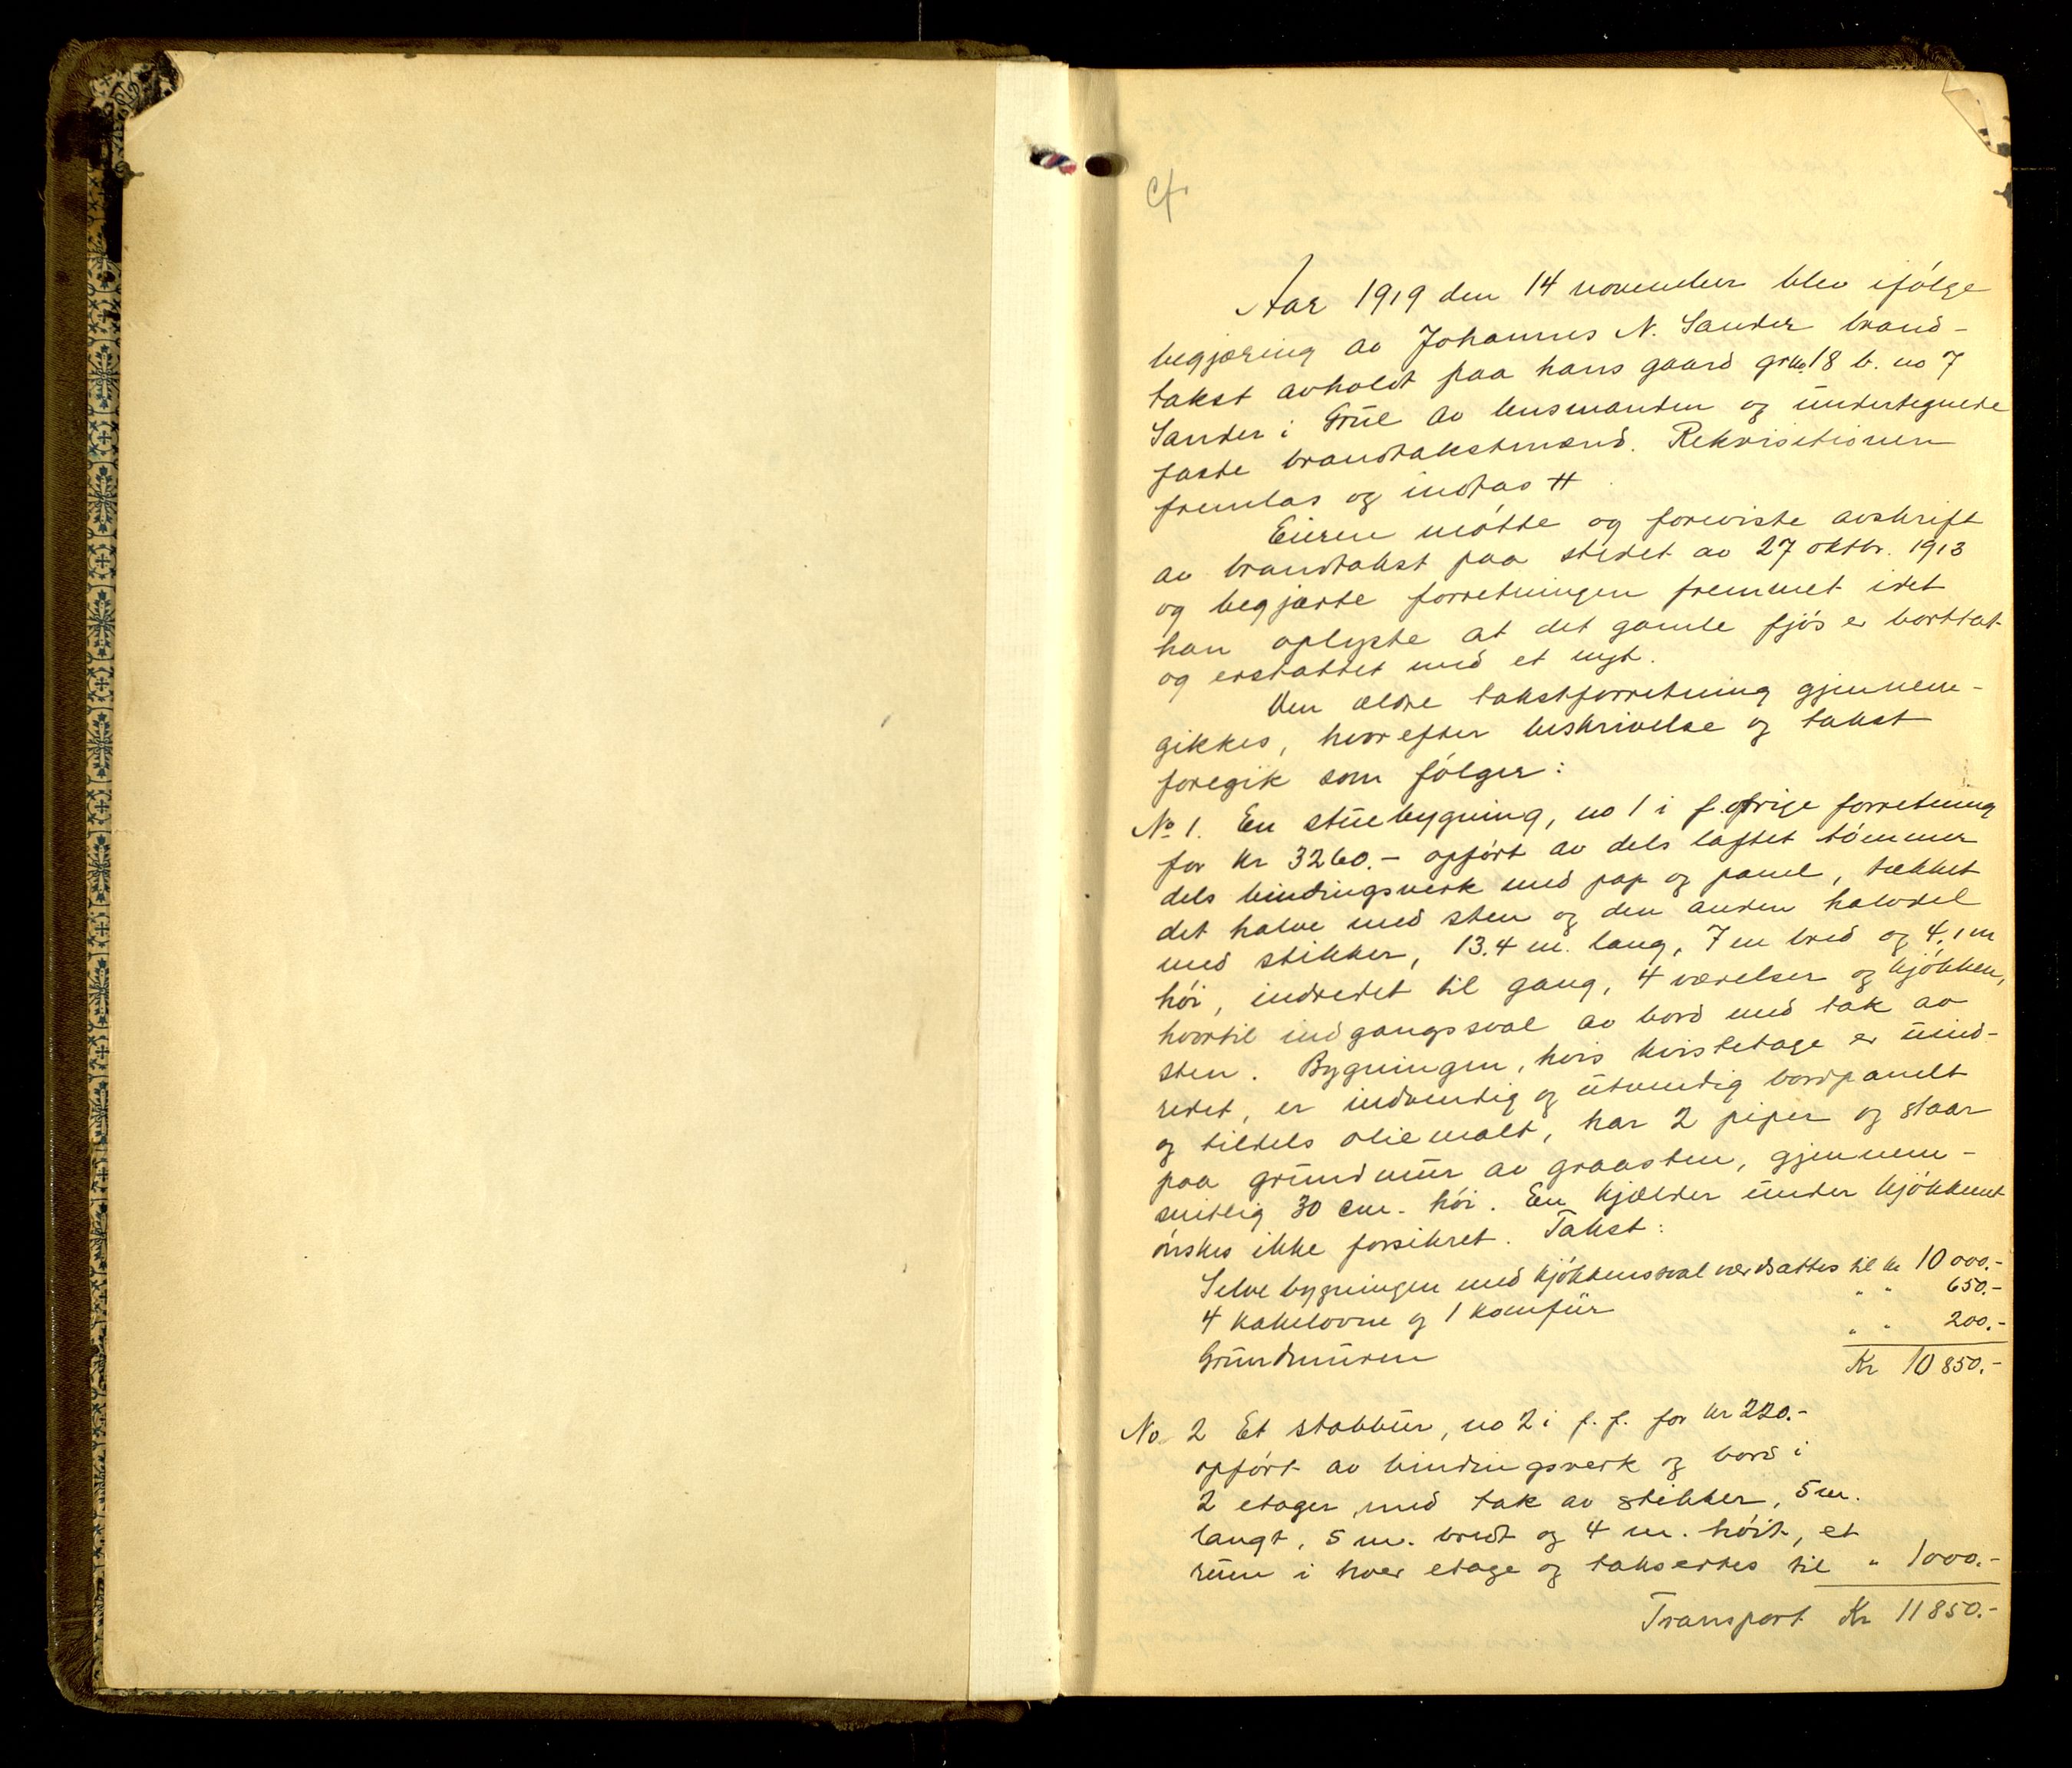 cf.
Aar 1919 den 14 november blev ifölge
begjæring av Johannes N. Sander brand-
takst avholdt paa hans gaard grno. 18 b. no 7
Sander i Grue av lensmanden og undertegnede
faste brandtakstmænd. Rekvisitionen
fremlas og indtas #
Eieren mötte og foreviste avskrift
av brandtakst paa stedet av 27 oktbr. 1913
og begjærte forretningen fremmet idet
han oplyste at det gamle fjös er borttat
og erstattet med et nyt.
Den ældre takstforretning gjennem-
gikkes, hvorefter beskrivelse og takst
foregik som fölger:
No 1. En stuebygning, no 1 i f. forretning
for kr 3260.- opfört av dels laftet tömmer
dels bindingsverk med pap og panel, tækket
det halve med sten og den anden halvdel
med stikker, 13.4 m. lang, 7 m bred og 4,1 m
höi, indredet til gang, 4 værelser og kjökken,
hvortil indgangssval av bord med tak av
sten. Bygningen, hvis kvistetage er uind-
redet, er indvendig og utvendig bordpanelt
og tildels oliemalt, har 2 piper og staar
paa grundmur av graasten, gjennem-
snitlig 30 cm. höi. En kjælder under kjökkenet
önskes ikke forsikret. Takst:
Selve bygningen med kjökkensval værdsattes til kr 10 000.-
4 kakelovne og 1 komfür " " 650.-
Grundmuren " " 200.-
Kr 10 850.-
No 2 Et stabbur, no 2 i f. f. for kr 220.-
opfört av bindingsverk og bord i
2 etager med tak av stikker, 5 m.
langt, 5 m. bredt og 4 m. höit, et
rum i hver etage og taksertes til " 1000.-
Transport Kr 11 850.-